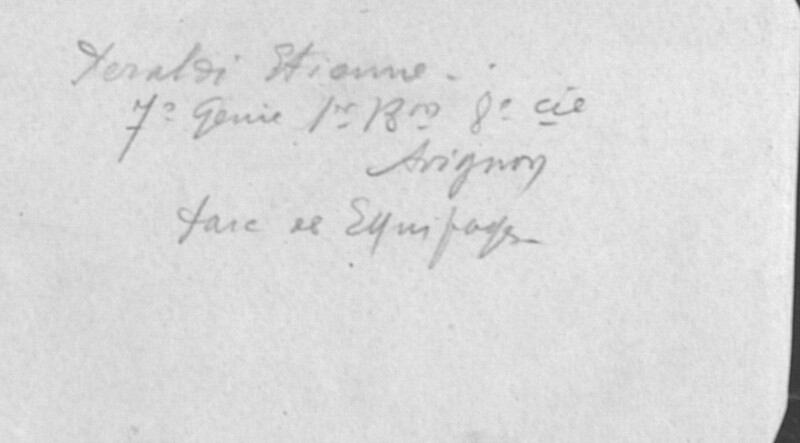 Peraldi Etienne.
7e Genie 1er Bon 8e cie
Avignon
Parc et Equipages